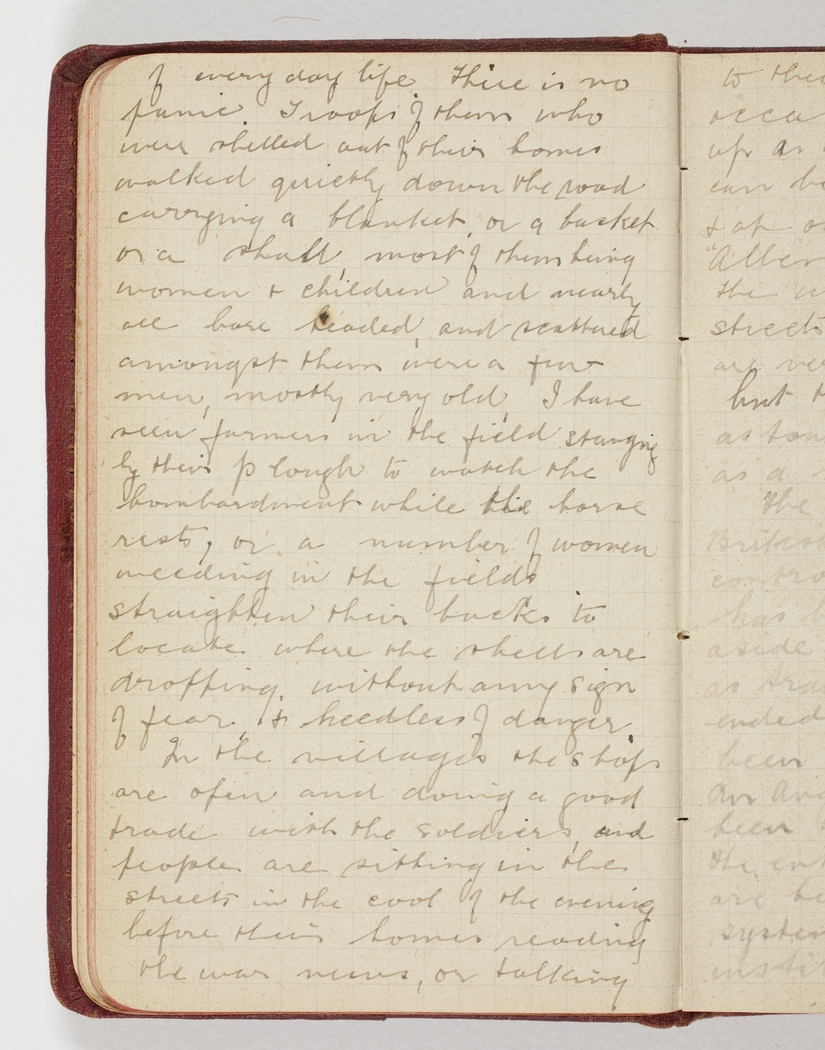 of every day life There is no
panic. Troops of them who
were shelled out of their homes
walked quietly down the road
carrying a blanket, or a basket
or a shall, most of them being
women & children and nearly
all bare headed, and scattered
amongst them were a few
men, mostly very old, I have
seen farmers in the field standing
by their plough to watch the
bombardment while the horse
rests, or a number of women
weeding in the fields
straighten their backs to
locate where the shells are
dropping, without any sign
of fear & heedless of danger.
In the villages the shops
are open and doing a good
trade with the soldiers, and
people are sitting in the
streets in the cool of the evening
before their homes reading
the war news, or talking
to
occu
up as
can be
& at
the
streets
are ver
but
as
as a
The
British
contro
has
aside
as
ended
been
an
been
the
are be
system
instit